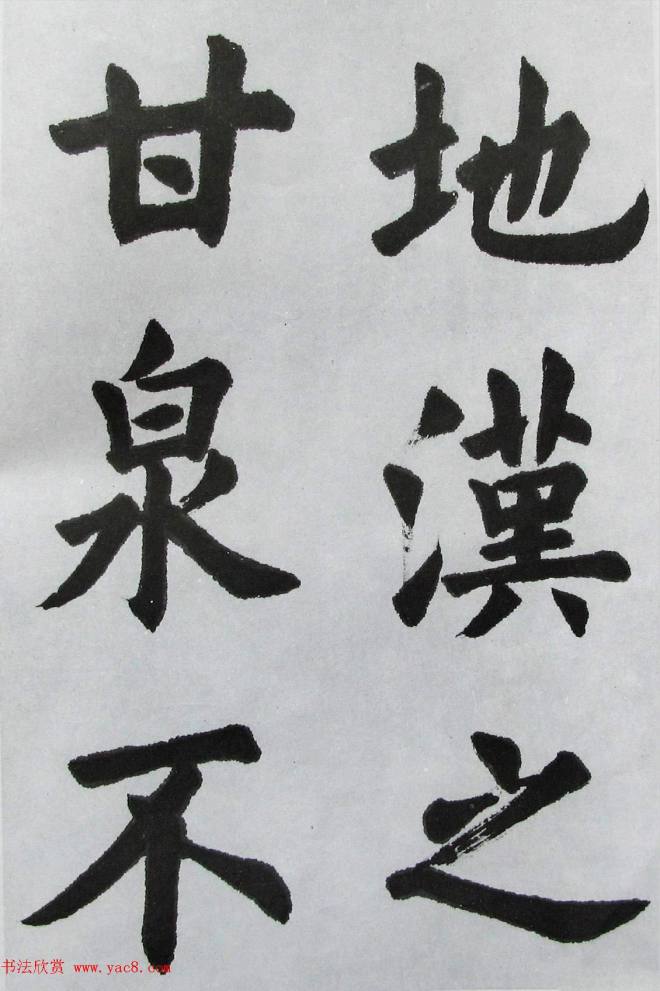 地漢之
甘泉不
书法欣赏 www.yac8.com